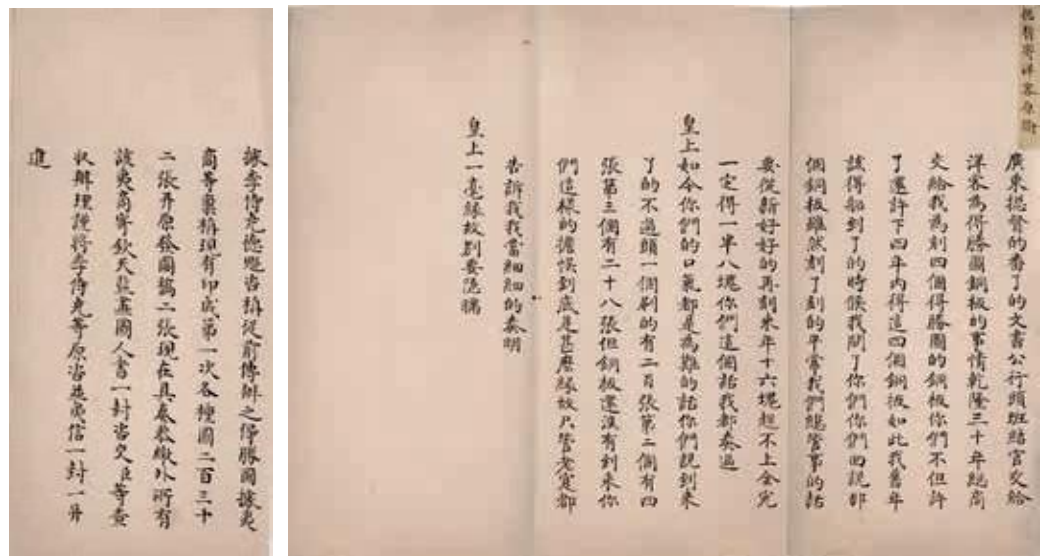 寄洋客原
廣東總督的番了的文書公行頭班結官交給
洋客為得勝圖銅板的事情乾隆三十年總商
交給我為刻四個得勝圖的銅板你們不但許
了還許下四年內得這四個銅板如此我舊年
該得船到了的時候我問了你們你們回說那
個銅板雖然刻了刻的平常我們總管事的話
要從新好好的再刻來年十六塊趕不上全完
一定得一半八塊你們這個話我都奏過
皇上如今你們的口氣都是為難的話你們說到來
了的不過頭一個刷的有二百張第二個有四
張第三個有二十八張但銅板還沒有到來你
們這樣的擔悞到底是甚麼緣故只管老寔都
告訴我我當細細的奏明
皇上一毫緣故別要隱瞞
據李侍堯德魁咨稱從前傳辦之得勝圖據夷
商等稟稱現有印成第一次各種圖二百三十
二張并原發圖稿二張現在具奏恭繳外所有
該夷商寄欽天監蓋國人書一封咨交臣等查
收辦理謹將李侍堯等原咨並夷信一封一并
進